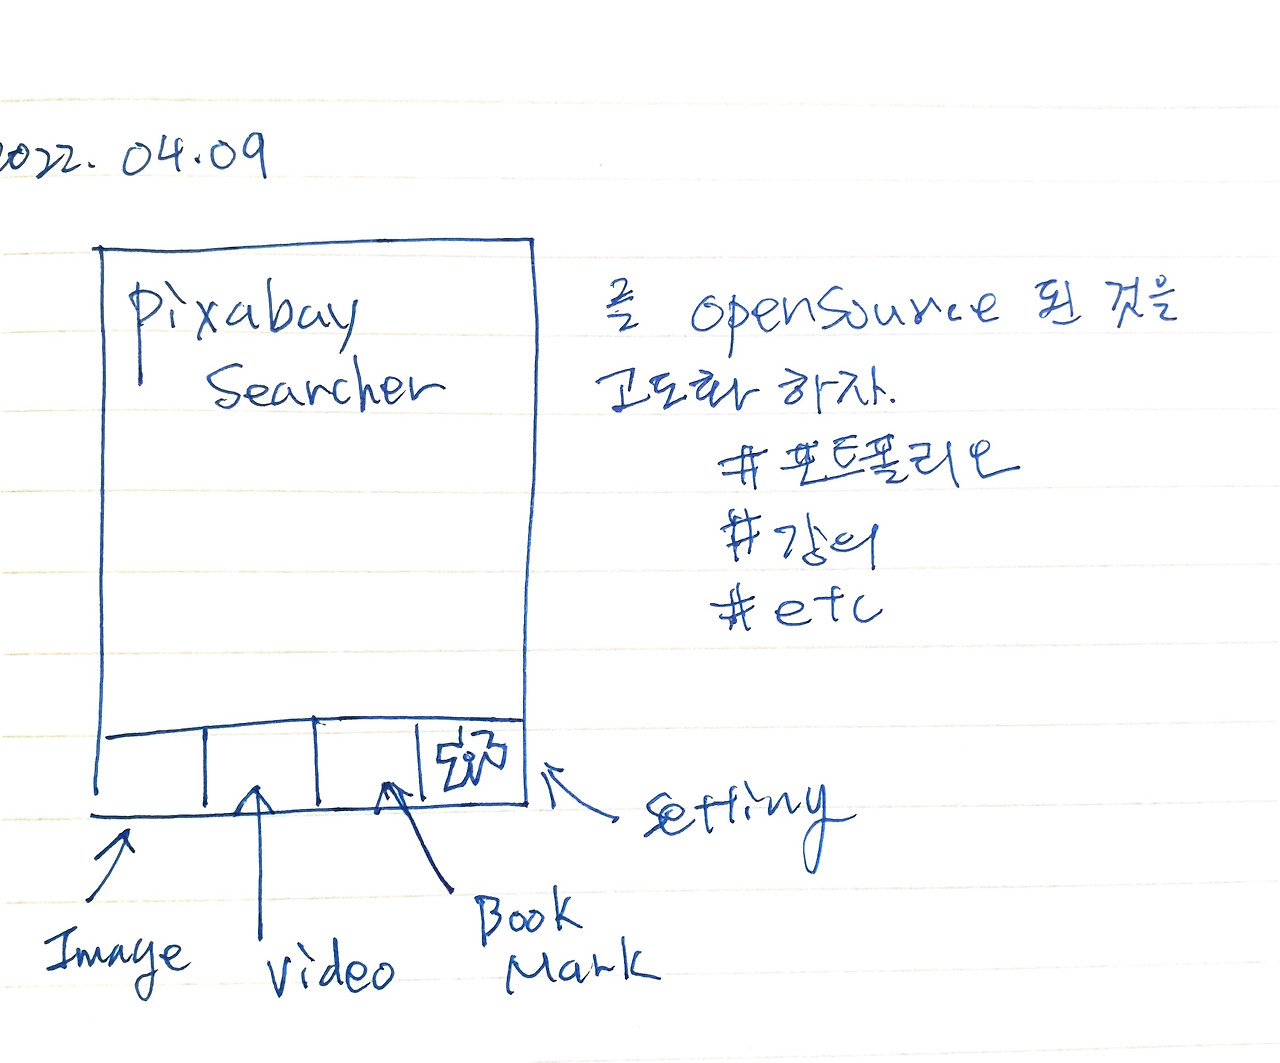 2022. 04.09
pixabay
Searcher
를 openSource 된 것을
고도화 하자.
#포트폴리오
#강의
#etc
setting
Image
video
Book
Mark